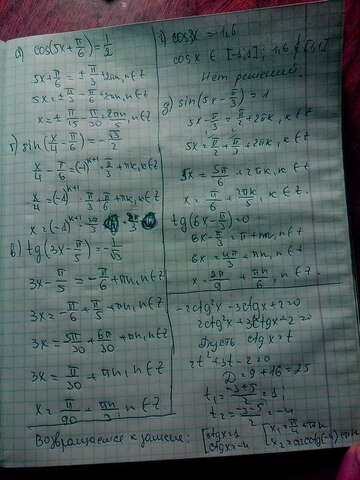 а) cos(5x+π/6)=1/2
5x+π/6=±π/3+2πn, n∈Z
5x=±π/3-π/6+2πn, n∈Z
x=±π/15-π/30+2πn/5, n∈Z
б) sin(x/4-π/6)=-√3/2
x/4-π/6=(-1)^k+1·π/3+πk, k∈Z
x/4=(-1)^k+1·π/3+π/6+πk, n∈Z
в) tg(3x-π/5)=-1/√3
3x-π/5=-π/6+πn, n∈Z
3x=-π/6+π/5+πn, n∈Z
3x=-5π/30+6π/30+πn, n∈Z
3x=π/30+πn, n∈Z
x=π/90+πn/3, n∈Z
cos3x=-1,6
cosx∈[-1;1];
Нет решений.
д) sin(5x-π/3)=1
5x-π/3=π/2+2πk, k∈Z
5x=π/2+π/3+2πk, k∈Z
5x=5π/6+2πk, k∈Z
x=π/6+2πk/5, k∈Z.
tg(6x-π/3)=0
6x-π/3=π+πn, n∈Z
6x=4π/3+πn, n∈Z
x=2π/9+πn/6, n∈Z.
-2ctg²x-3ctgx+2=0
2ctg²x+3ctgx-2=0
Пусть ctgx=t
2t²+3t-2=0
D=9+16=25
t₁=-3+5/2=1;
t₂=-3-5/2=-4
Возвращаемся к замене:
[ctgx=1
ctgx=-4
[x₁=π/4+πn
x₂=arcctg(-4)+πn